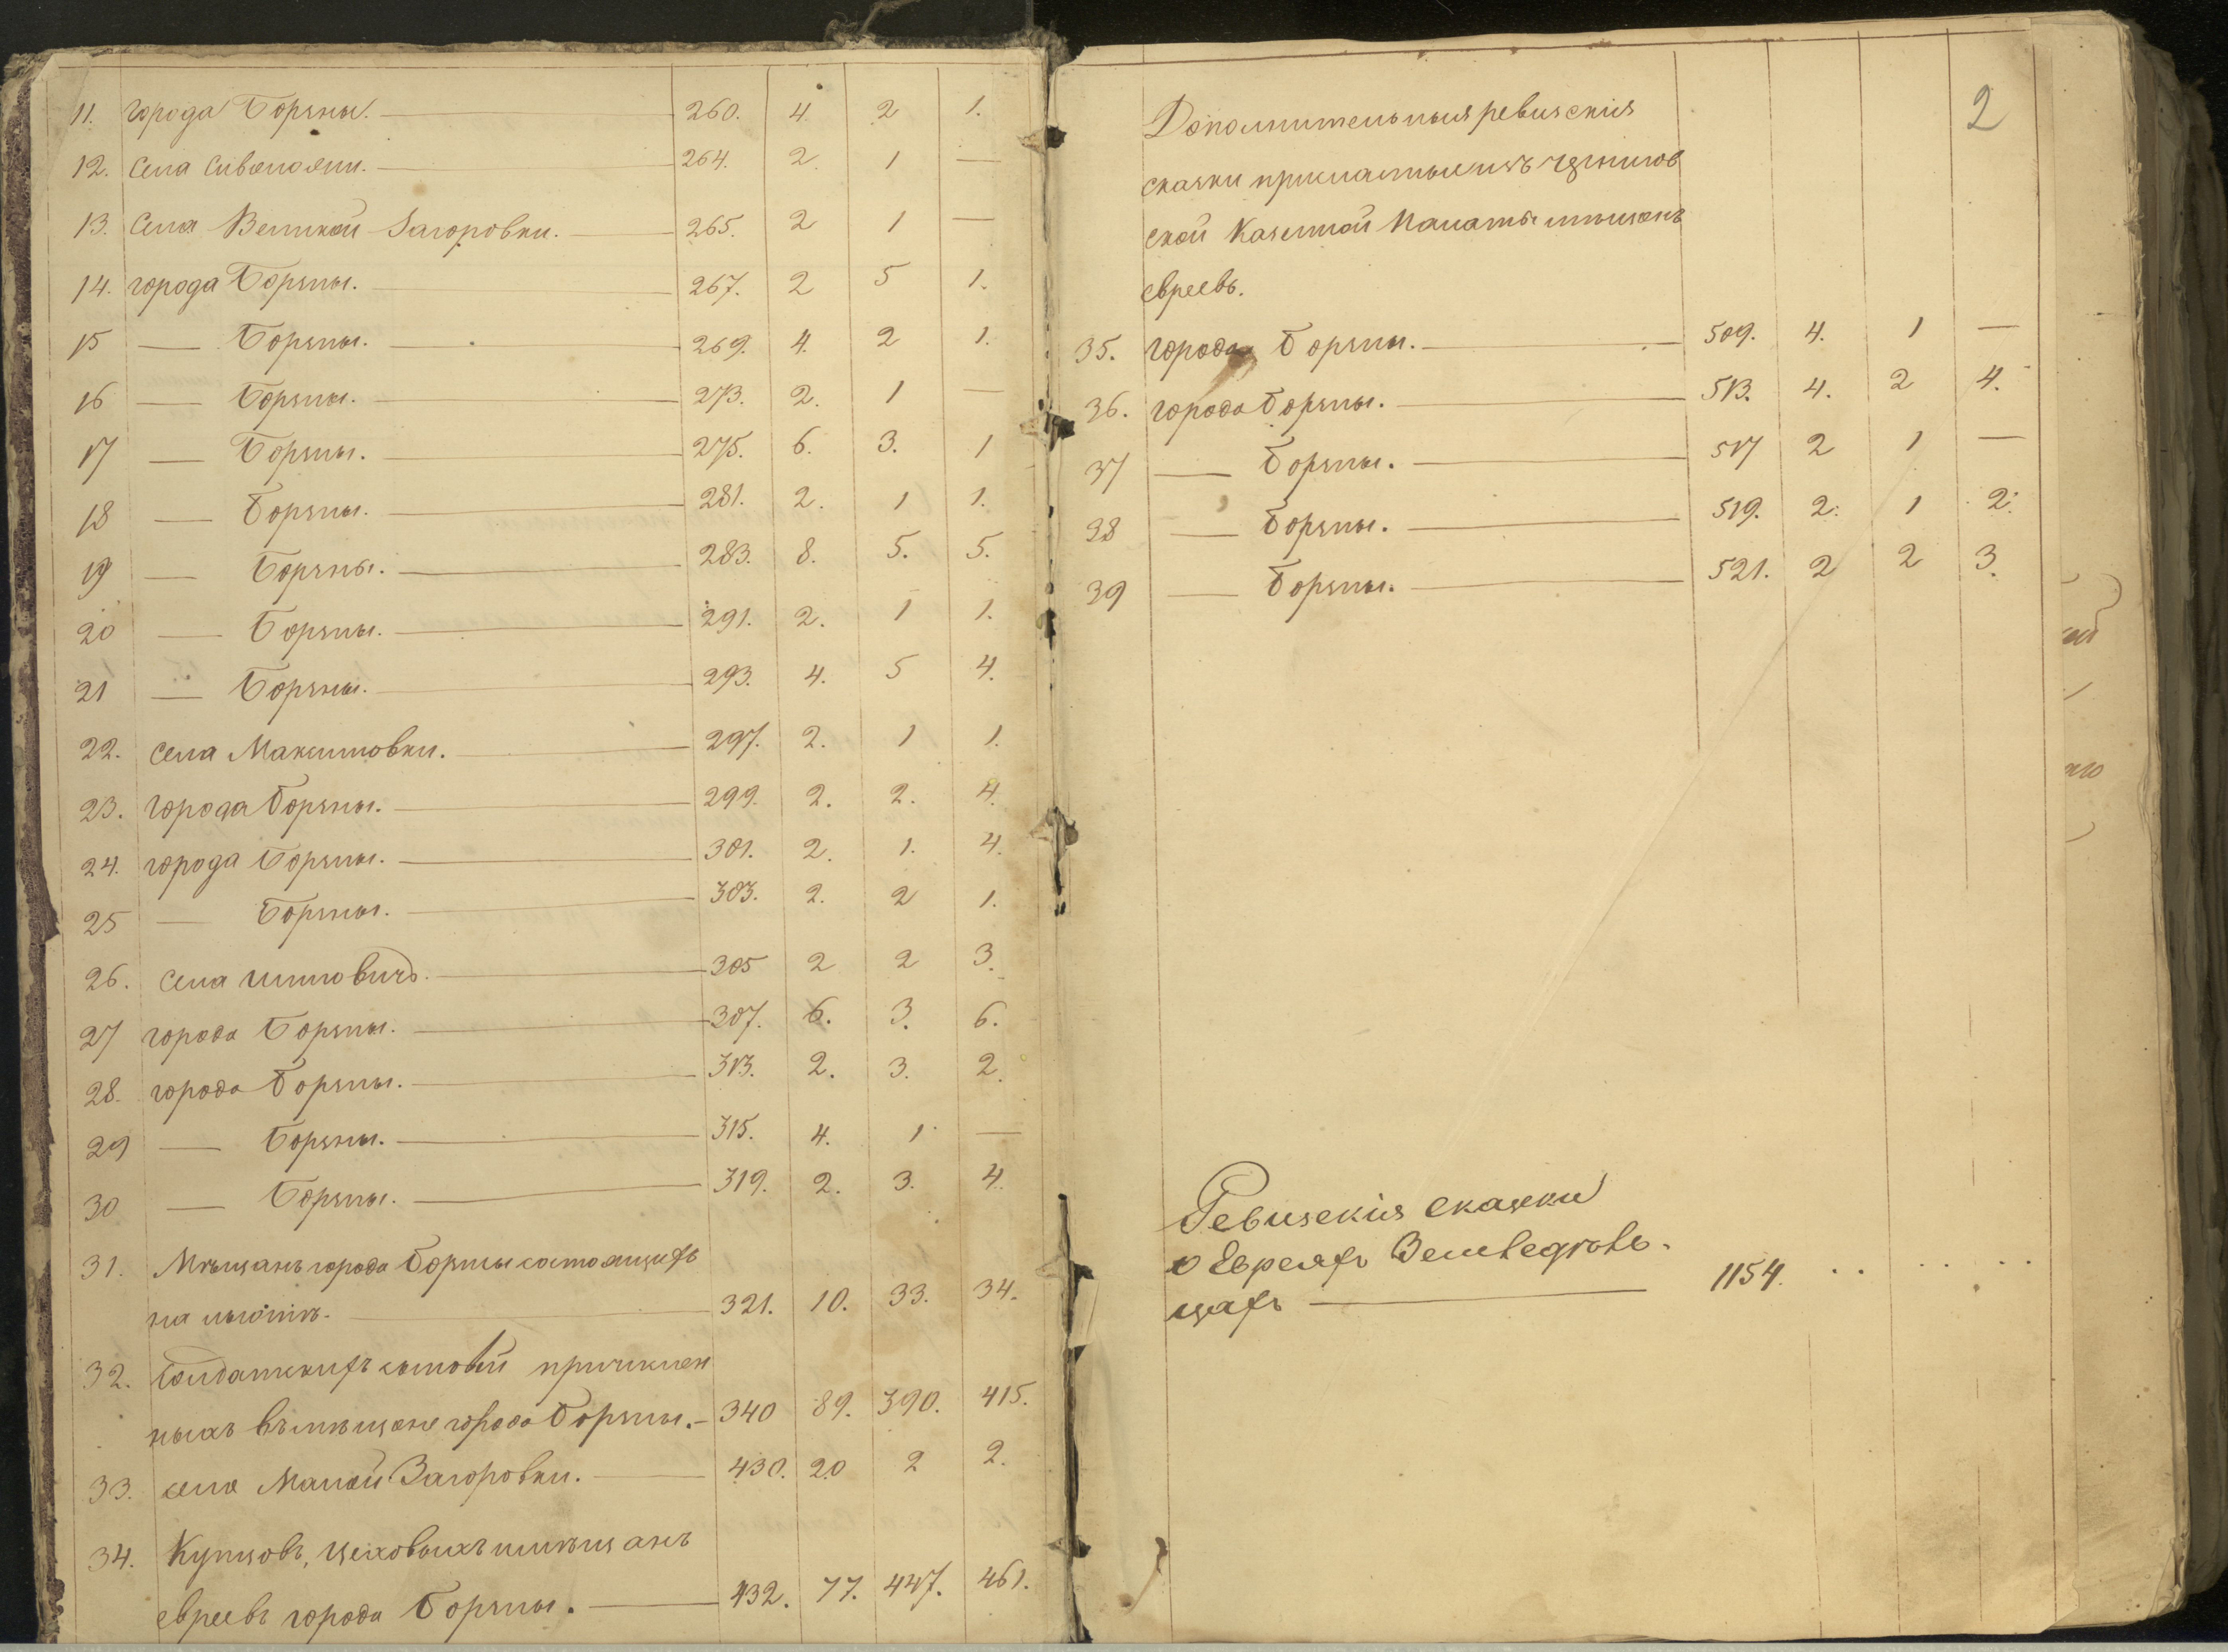 11. города Борзны. 260. 4. 2 1.
12. Села Сиволожи. 264. 2. 1 —
13. Села Великой Загоровки. 265. 2 1 —
14. города Борзны. 267. 2 5 1.
15 — Борзны. 269. 4. 2 1.
16 — Борзны. 273. 2. 1 —
17 — Борзны. 275. 6. 3. 1
18 — Борзны. 281. 2. 1 1.
19 — Борзны. 283. 8. 5. 5.
20 — Борзны. 291. 2. 1 1.
21 — Борзны. 293. 4. 5 4.
22. села Максимовки. 297. 2. 1 1.
23. города Борзны. 299. 2. 2. 4.
24. города Борзны. 301. 2. 1. 4.
25 — Борзны. 303. 2. 2 1.
26. села 305 2 2 3.
27 города Борзны. 307. 6. 3. 6.
28. города Борзны. 313. 2. 3. 2.
29 — Борзны. 315. 4. 1 —
30 — Борзны. 319. 2. 3. 4.
31. Мѣщанъ города Борзны состоящихъ
на льготѣ. 321. 10. 33. 34.
32. Солдатскихъ сыновей причислен
ныхъ въ мѣщане города Борзны. 340 89. 390. 415.
33. села Малой Загоровки. 430. 20 2 2.
34. Купцовъ, цеховыхъ и мѣщанъ
евреевъ города Борзны. 432. 77. 447. 461.
2
Дополнительныя ревизскія
сказки присланныя изъ Чернигов
ской Казенной Палаты мѣщанъ
евреевъ.
35. города Борзны. 509. 4. 1 —
36. города Борзны. 513. 4. 2 4.
37 — Борзны. 517 2 1 —
38 — Борзны. 519. 2. 1 2.
39 — Борзны. 521. 2 2 3.
Ревизскія сказки
о Евреяхъ Земледѣль-
цахъ — 1154.